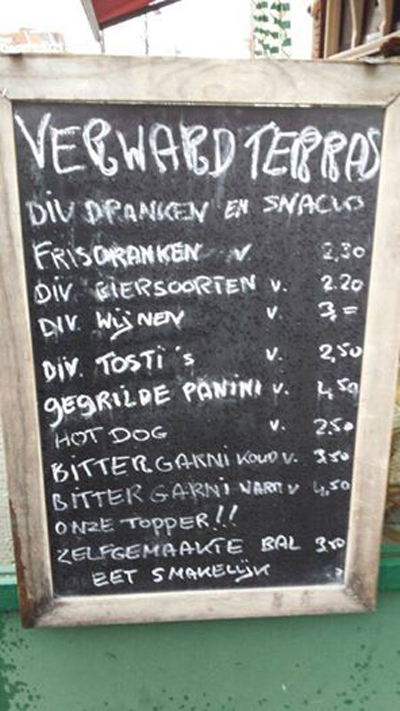 VERWARD TERRAS
DIV DRANKEN EN SNACKS
FRISDRANKEN v. 2,30
DIV BIERSOORTEN v. 2.20
DIV WIJNEN v. 3,=
DIV. TOSTI's v. 2,50
GEGRILDE PANINI v. 4,50
HOT DOG v. 2.50
BITTERGARNI KOUD v. 3,50
BITTER GARNI WARM v 4,50
ONZE TOPPER!!
ZELFGEMAAKTE BAL 3,50
EET SMAKELIJK